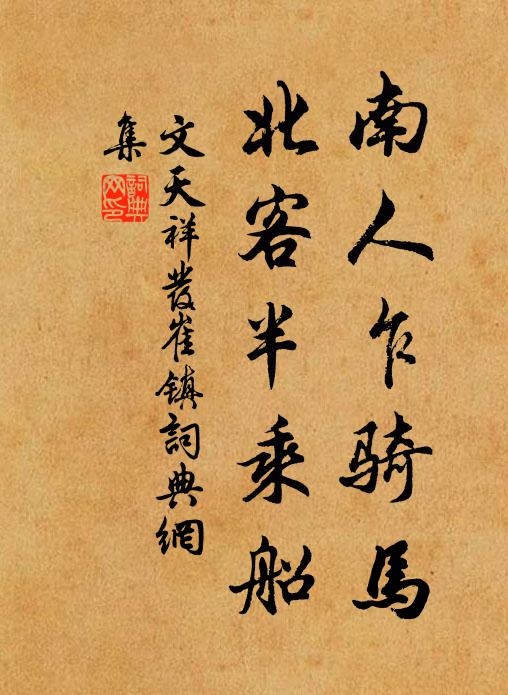 南人乍骑馬
北客半乘船
文天祥發崔镇詞典網
集
詞典
网印